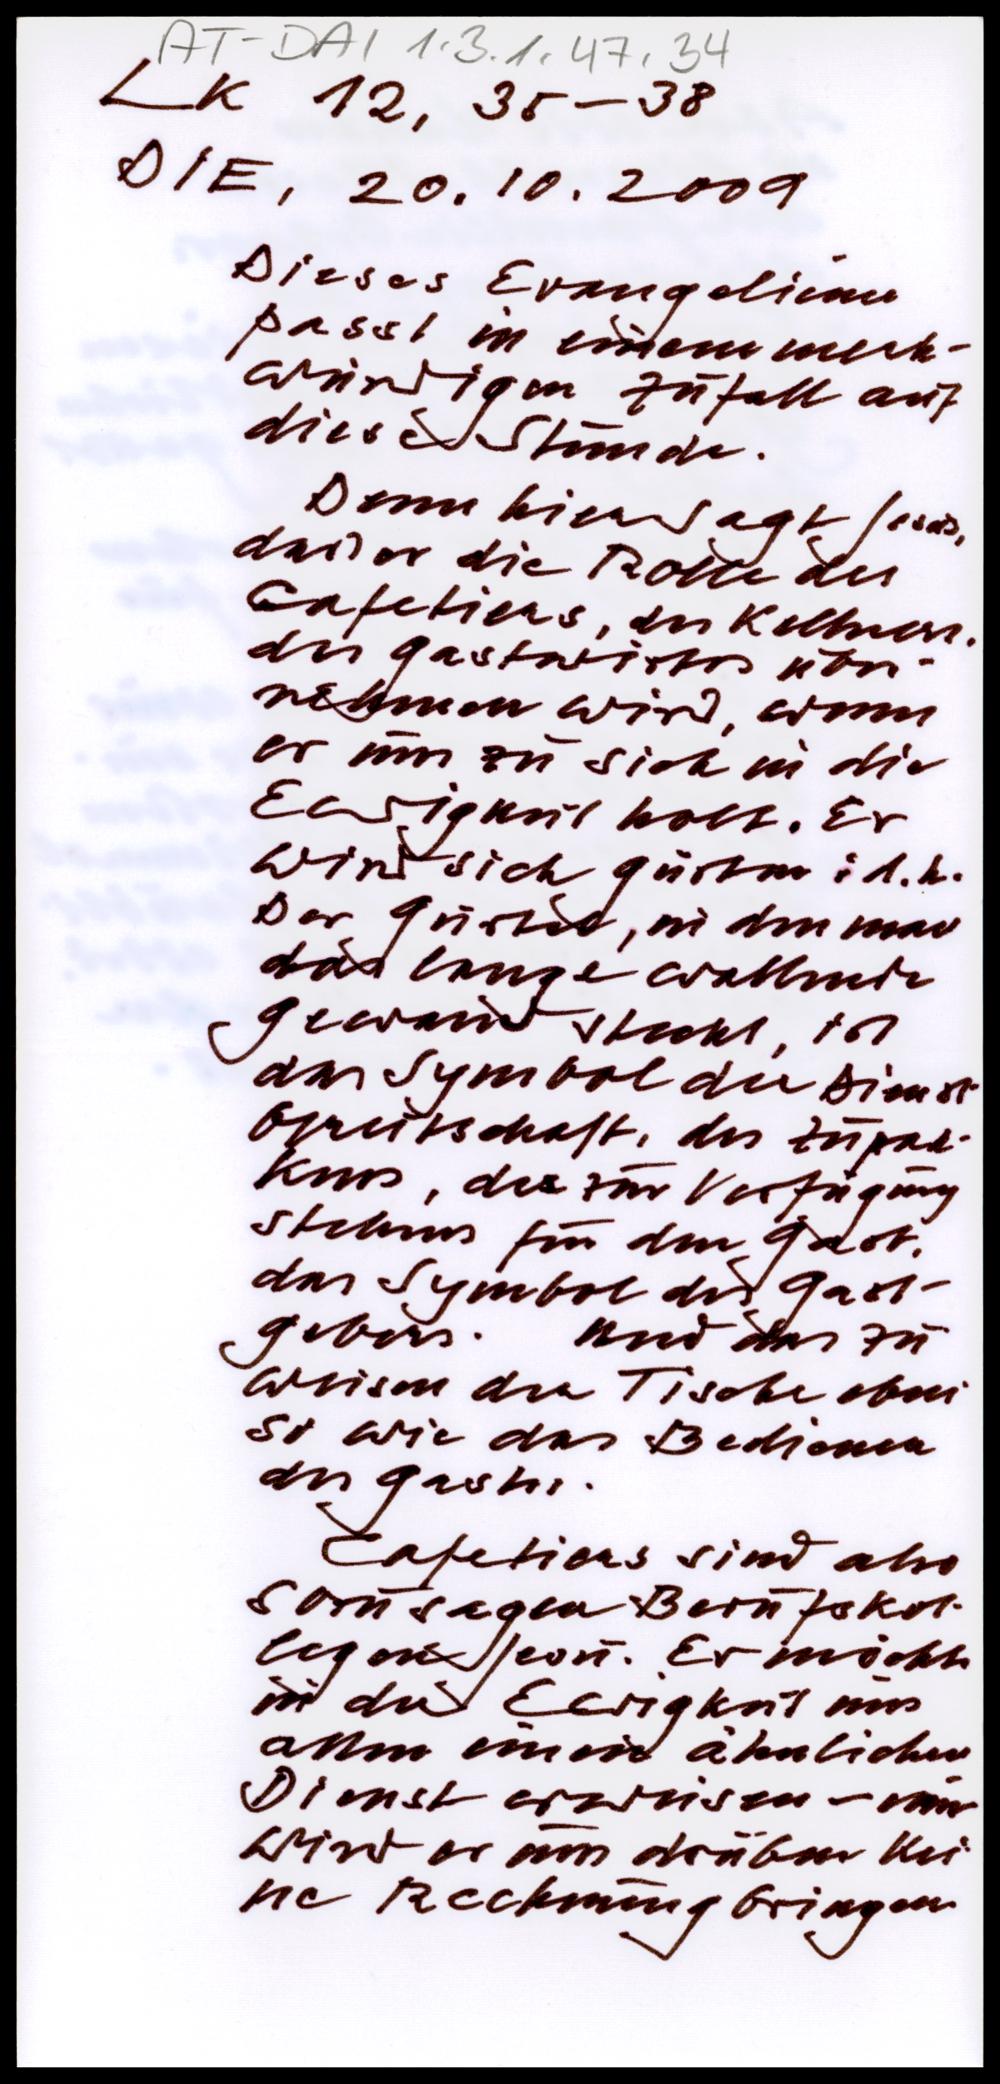 AT-DAI 1.3.1.47.34
LK 12, 35-38
DIE, 20.10.2009
Dieses Evangelium
passt in einem merk-
würdigen Zufall auf
diese Stunde.
Denn hier sagt Jesus,
dass er die Rolle des
Cafetiers, des Kellners,
des Gastwirtes über-
nehmen wird, wenn
er uns zu sich in die
Ewigkeit holt. Er
wird sich gürten: d.h.
Der Gürtel, in den man
das lange wallende
Gewand steckt, ist
das Symbol der Dienst
bereitschaft, des Zupak-
kens, des zur Verfügung
stehens für den Gast,
das Symbol des Gast-
gebers. Und das Zu
weisen der Tische eben
so wie das Bedienen
des Gastes.
Cafetiers sind also
sozusagen Berufskol-
legen Jesu. Er möchte
in der Ewigkeit uns
allen einen ähnlichen
Dienst erweisen - nur
wird er uns drüben kei
ne Rechnung bringen